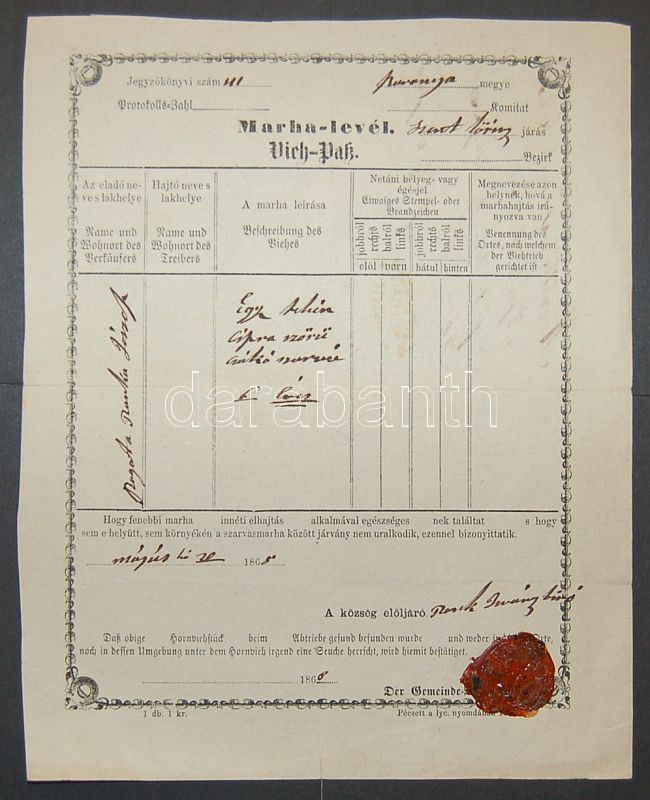 Jegyzőkönyvi szám 111
Baranya megye
Protokolls-Zahl
Komitat
Marha-levél.
járás
Vieh-Paß.
Bezirk
Az eladó neve s lakhelye
Name und Wohnort des Verkäufers
Hajtó neve s lakhelye
Name und Wohnort des Treibers
A marha leirása
Beschreibung des Viehes
Netáni bélyeg- vagy égésjel
Etwaiges Stempel- oder Brandzeichen
jobbról rechts
balról links
jobbról rechts
balról links
elöl vorn
hátul hinten
Megnevezése azon helynek, hová a marhahajtás irányozva van
Benennung des Ortes, nach welchem der Viehtrieb gerichtet ist
Egy tehén
cifra szőrű
csákó szarvú
6 éves
darabanth
Hogy fenebbi marha innéti elhajtás alkalmával egészséges nek találtat s hogy
sem e helyütt, sem környékén a szarvasmarha között járvány nem uralkodik, ezennel bizonyittatik.
május hó 20 1868
A község elöljáró. Iványi biró
Daß obige Hornviehstück beim Abtriebe gesund befunden wurde und weder Orte,
noch in dessen Umgebung unter dem Hornvieh irgend eine Seuche herrscht, wird hiemit bestätiget.
1868
Der Gemeinde-
1 db. 1 kr.
Pécsett a lyc. nyomdában